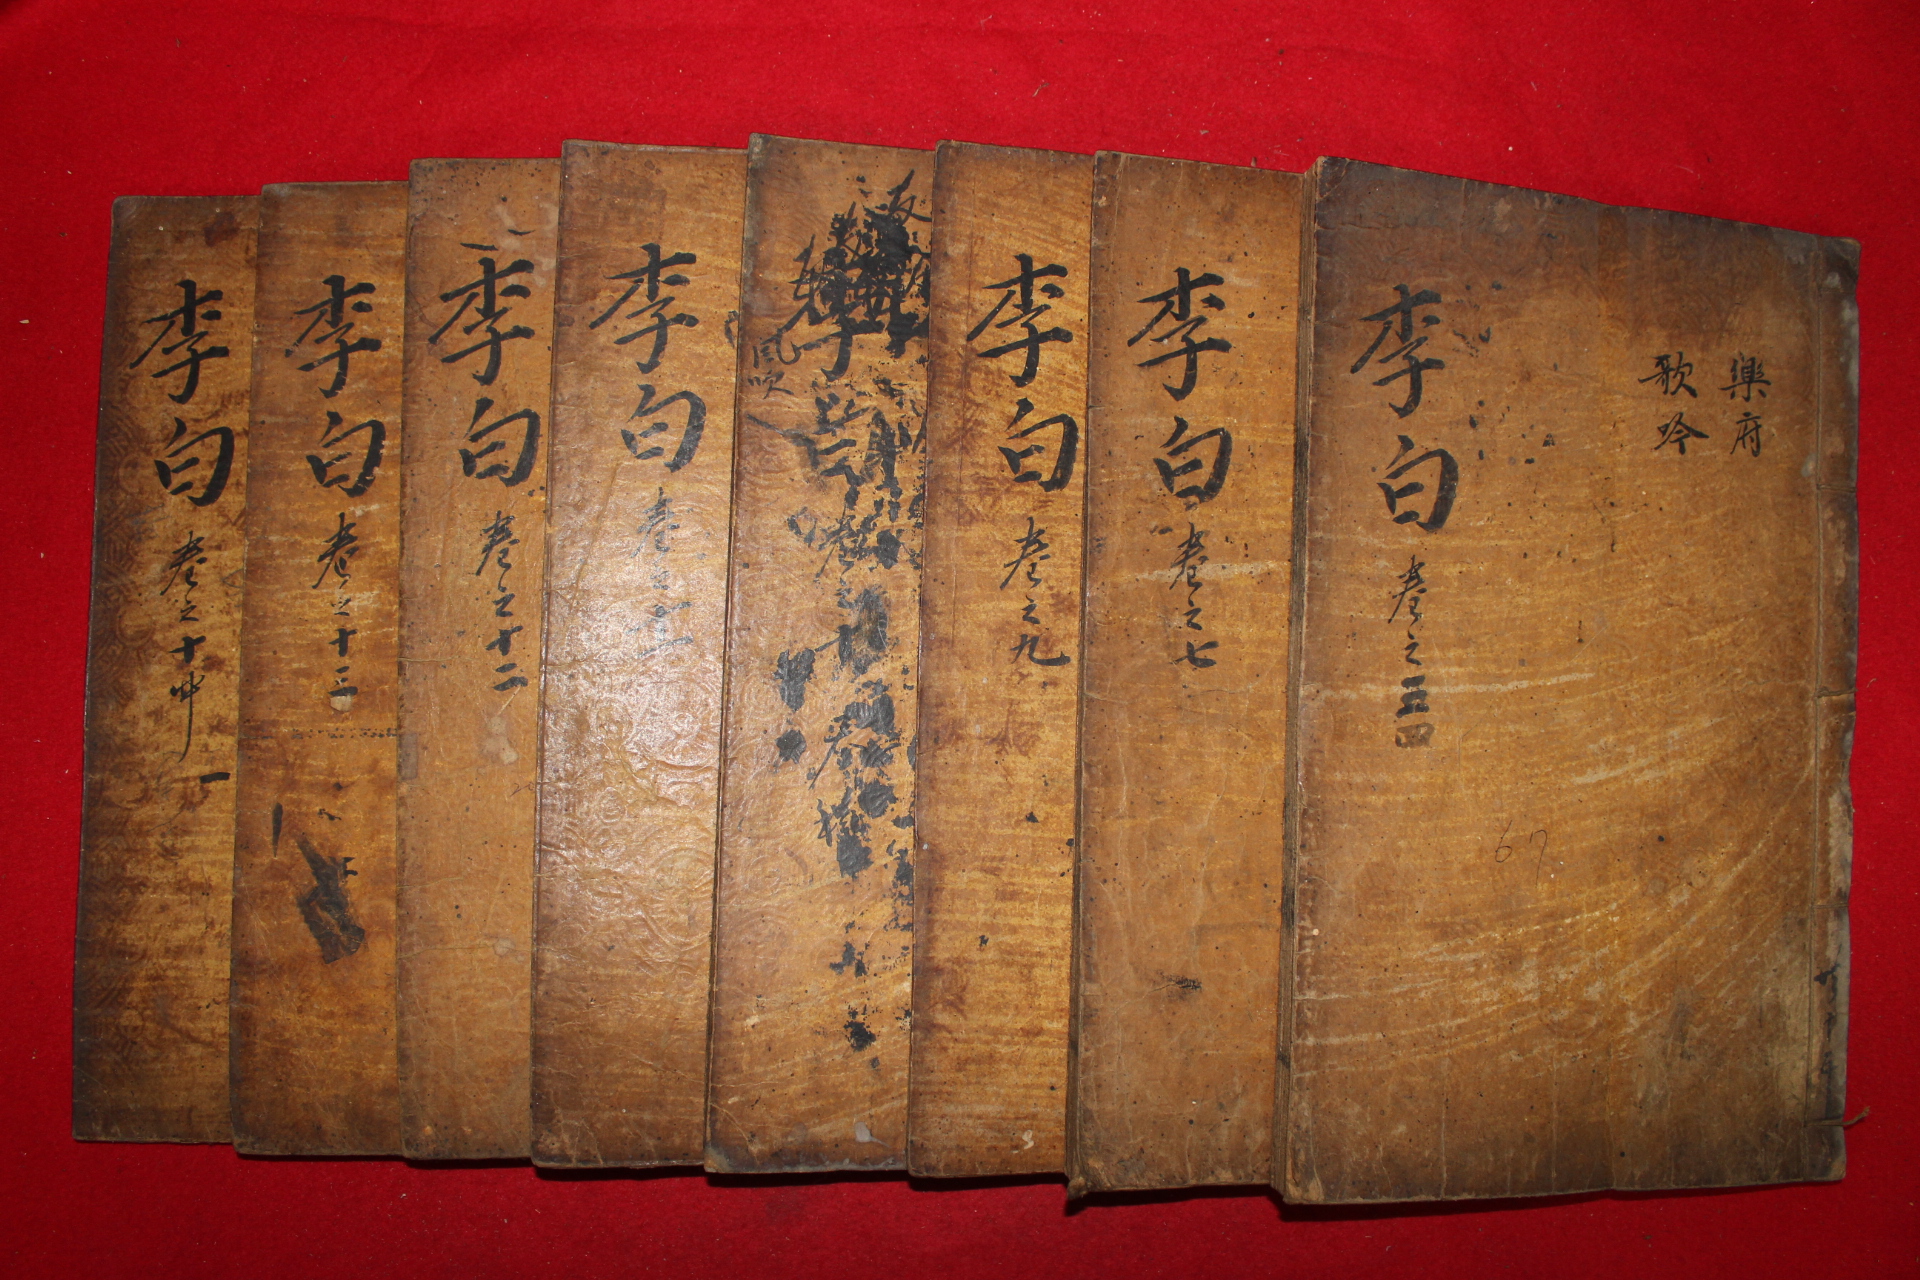 樂府
歌吟
李白 卷之三四
67
李白 卷之七
李白 卷之九
李白 卷之十
風吹
李白 卷之十一
李白 卷之十二
李白 卷之十三
李白 卷之十